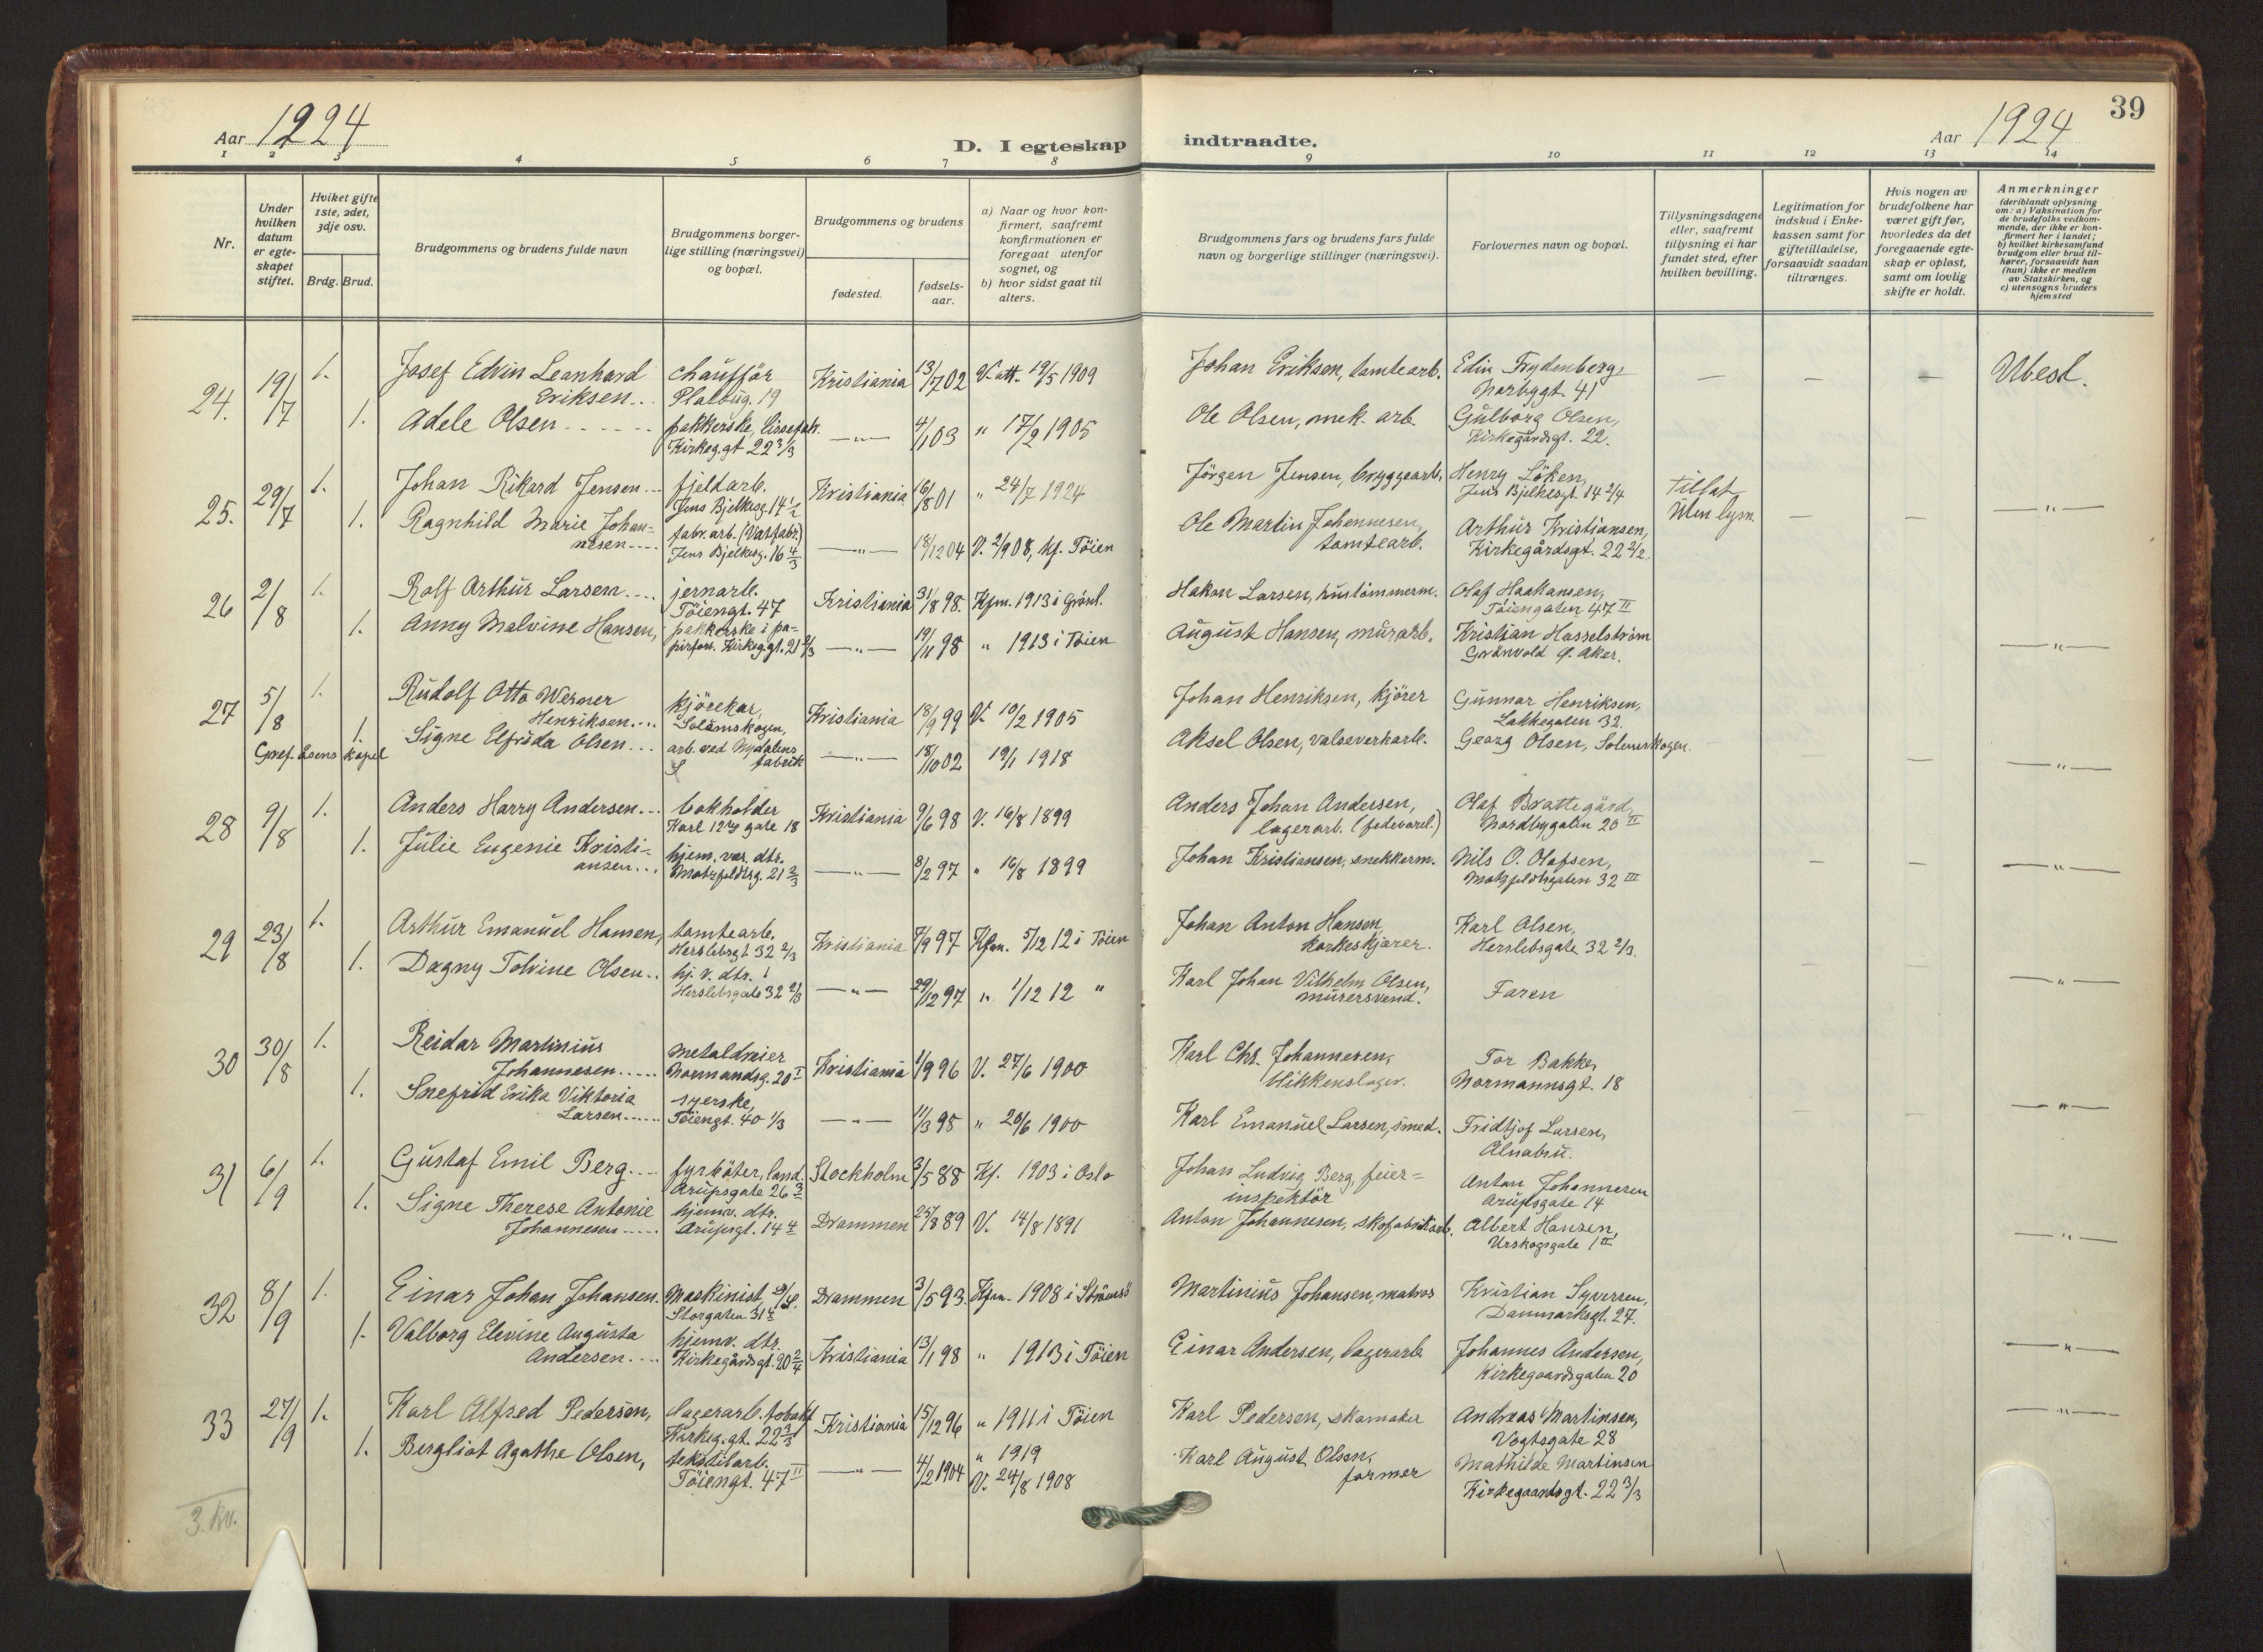 39
Aar 1924
D. I egteskap indtraadte.
Aar 1924
1 2 3 4 5 6 7 8 9 10 11 12 13 14
Nr.
Under hvilken datum er egteskapet stiftet.
Hviket gifte 1ste, 2det, 3dje osv.
Brdg. Brud.
Brudgommens og brudens fulde navn
Brudgommens borgerlige stilling (næringsvei) og bopæl.
Brudgommens og brudens
fødested.
fødselsaar.
a) Naar og hvor konfirmert, saafremt konfirmationen er foregaat utenfor sognet, og
b) hvor sidst gaat til alters.
Brudgommens fars og brudens fars fulde navn og borgerlige stillinger (næringsvei).
Forlovernes navn og bopæl.
Tillysningsdagene eller, saafremt tillysning ei har fundet sted, efter hvilken bevilling.
Legitimation for indskud i Enkekassen samt for giftetilladelse, forsaavidt saadan tiltrænges.
Hvis nogen av brudefolkene har været gift før, hvorledes da det foregaaende egteskap er opløst, samt om lovlig skifte er holdt.
Anmerkninger
(deriblandt oplysning om: a) Vaksination for de brudefolks vedkommende, der ikke er konfirmert her i landet; b) hvilket kirkesamfund brudgom eller brud tilhører, forsaavidt han (hun) ikke er medlem av Statskirken, og c) utensogns bruders hjemsted
24. 19/7 1. Josef Edvin Leonhard Eriksen.. chauffør Platoug. 19 Kristiania 13/7 02 V. att. 19/5 1909 Johan Eriksen, tomtearb. Edin Frydenberg, Norbygt. 41 — — — Ubesl.
1. Adele Olsen ...... pakkerske, Kirkeg.gt 22 3/3 —"— 4/1 03 " 17/2 1905 Ole Olsen, mek. arb. Gulborg Olsen, Kirkegårdsgt. 22.
25. 29/7 1. Johan Rikard Jensen... fjeldarb. Jens Bjelkesg. 14 1/2 Kristiania 16/8 01 " 24/7 1924 Jørgen Jensen, bryggearb. Henry Løken, Jens Bjelkesgt. 14 2/4 Tillat Uten lysn. — — —"—
1. Ragnhild Marie Johannesen.... fabr. arb. (Vatfabr.) Jens Bjelkesg. 16 4/3 —"— 18/12 04 V. 2/9 08, kf. Tøien Ole Martin Johannesen, tomtearb. Arthur Kristiansen, Kirkegårdsgt. 22 2/2.
26 2/8 1. Rolf Arthur Larsen.... jernarb. Tøiengt. 47 Kristiania 31/8 98. Kfm. 1913 i Grønl. Hakon Larsen, hustømmerm. Olaf Haakansen, Tøiengaten 47 II
1. Anny Malvine Hansen, pakkerske i Kirkeg.gt. 21 2/3 —"— 19/11 98 " 1913 i Tøien August Hansen, murarb. Kristian Hasselstrøm Grønvold Ø. Aker. —"—
27 5/8 1. Rudolf Otto Werner Henriksen.... kjørekar, Kristiania 18/9 99 V. 10/2 1905 Johan Henriksen, kjører Gunnar Henriksen, Lakkegaten 32.
1. Signe Elfrida Olsen... arb. ved Nydalens fabrik —"— 18/10 02 19/1 1918 Aksel Olsen, valseverkarb. Georg Olsen, Solemskogen. — — —"—
Gref. kapel
28 9/8 1. Anders Harry Andersen... bokholder Karl 12tes gate 18 Kristiania 9/6 98 V. 16/8 1899 Anders Johan Andersen, lagerarb. Olaf Brattegård, Nordbygaten 20 II
1. Julie Eugenie Kristiansen... hjem. vær. dtr. Motzfeldtsg. 21 2/3 —"— 8/2 97 " 16/8 1899 Johan Kristiansen, snekkerm. Nils O. Olafsen, Motzfeldtsgaten 32 III — — —"—
29 23/8 1. Arthur Emanuel Hansen, tomtearb. Herslebsgt 32 2/3 Kristiania 7/9 97 Kfm. 5/12 12 i Tøien Johan Anton Hansen, korkeskjærer. Karl Olsen, Herslebsgate 32 2/3.
1. Dagny Tolvine Olsen.. hj. v. dtr. Herslebsgate 32 2/3 —"— 29/12 97 " 1/12 12 " Karl Johan Vilhelm Olsen, murersvend. Faren —"—
30 30/8 1. Reidar Martinius Johannesen..... Metaldreier Normandsg. 20 I Kristiania 1/9 96 V. 27/6 1900 Karl Chr. Johannesen, blikkenslager. Tor Bakke, Normannsgt. 18
1. Snefrid Erika Viktoria Larsen..... syerske, Tøiengt. 40 1/3 —"— 11/3 98 " 20/6 1900 Karl Emanuel Larsen, smed. Fridtjof Larsen, Alnabru. —"—
31 6/9 1. Gustaf Emil Berg.... fyrbøter, land. Arupsgate 26 Stockholm 3/5 88 Kf. 1903 i Oslo Johan Ludvig Berg, feierinspektør Anton Johannesen Arupsgate 14
1. Signe Therese Antonie Johannesen..... hjemv. dtr. Arupsgt. 14 Drammen 25/8 89 V. 14/8 1891 Anton Johannesen, skofabrikarb. Albert Hansen, Urskogsgate 1 II —"—
32 8/9 1. Einar Johan Johansen. Maskinist, Storgaten 31 Drammen 3/5 93. Kfm. 1908 i Strømsø Martinius Johansen, matros Kristian Syversen, Danmarksgt. 27.
1. Valborg Elevine Augusta Andersen.... hjemv. dtr. Kirkegårdsgt. 20 2/4 Kristiania 13/1 98 " 1913 i Tøien Einar Andersen, lagerarb. Johannes Andersen, Kirkegaardsgaten 20 —"—
33 27/9 1. Karl Alfred Pedersen, lagerarb. Kirkeg.gt. 22 3/3 Kristiania 15/12 96 " 1911 i Tøien Karl Pedersen, skomaker Andreas Martinsen, Vogtsgate 28 —"—
1. Bergliot Agathe Olsen, tekstilarb. Tøiengt. 47 II —"— 4/2 1904 " 1919 V. 24/8 1908 Karl August Olsen, former Mathilde Martinsen Kirkegaardsgt. 22 3/3
3. kv.